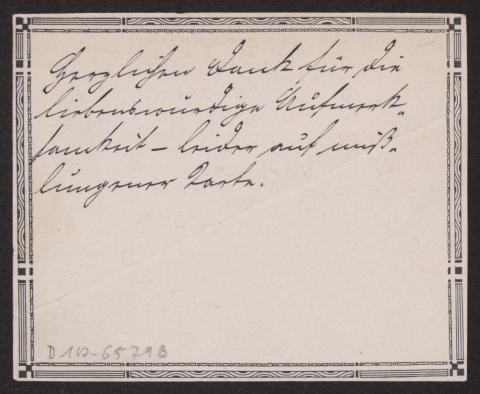 Herzlichen Dank für die
liebenswürdige Aufmerk-
samkeit – leider auf miß-
lungener Karte.
D 102-6579B